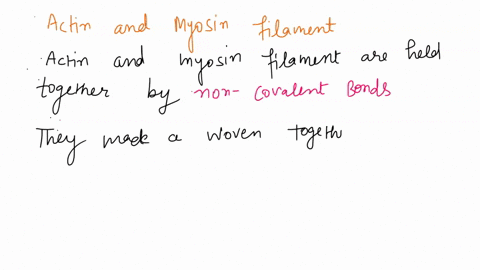 Actin and Myosin filament
Actin and myosin filament are held
together by non-covalent Bonds
They made a woven togeth